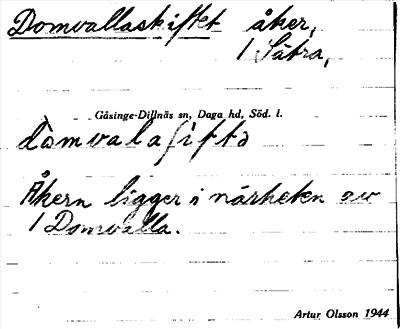 Domvallaskiftet åker,
1 Sätra,
Gåsinge-Dillnäs sn, Daga hd, Söd. l.
Åkern ligger i närheten av
1 Domvalla.
Artur Olsson 1944